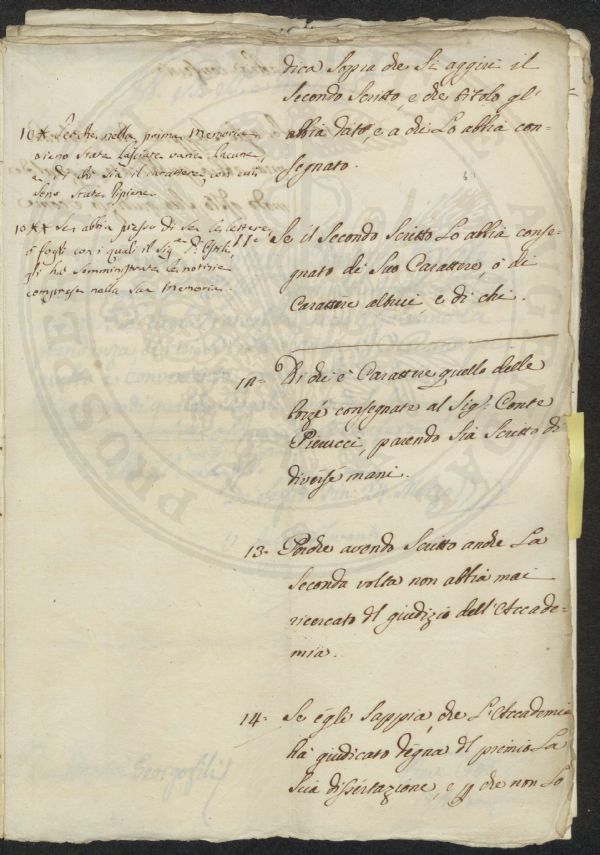 dica sopra che si aggiri il
secondo scritto, e che titolo gl'
abbia dato, e a chi lo abbia con-
segnato.
10* Perche nella prima Memoria
sieno state lasciate varie lacune,
e di chi sia il carattere, con cui
sono state ripiene
10** Se abbia presso di se le lettere,
o fogli con i quali il Sig.re D.
gli ha somministrate le notizie
comprese nella sua Memoria.
11= Se il secondo scritto lo abbia conse-
gnato di suo Carattere, ò di
Carattere altrui, e di chi.
12= Di che è Carattere quello delle
consegnate al Sig.r Conte
Pierucci, parendo sia scritto di
diverse mani.
13= Perche avendo scritto anche la
seconda volta non abbia mai
ricercato del giudizio dell'Accade-
mia.
14= Se egli sappia, che l'Accademia
hà giudicato degna del premio la
sua dissertazione, e che non lo